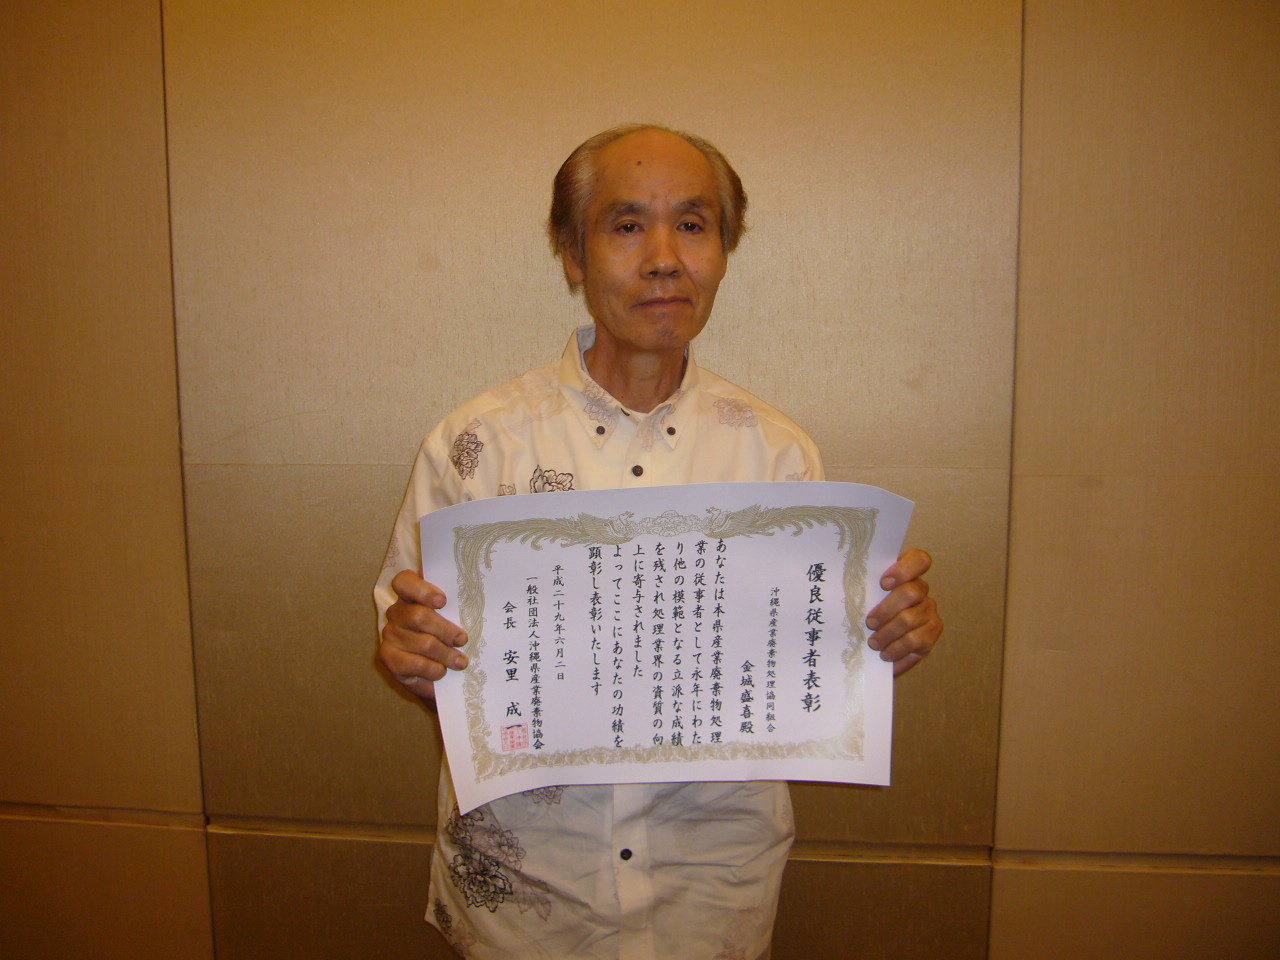 優良従事者表彰
沖縄県産業廃棄物処理協同組合
金城盛喜殿
あなたは本県産業廃棄物処理
業の従事者として永年にわた
り他の模範となる立派な成績
を残され処理業界の資質の向
上に寄与されました
よってここにあなたの功績を
顕彰し表彰いたします
平成二十九年六月二日
一般社団法人沖縄県産業廃棄物協会
会長 安里 成一